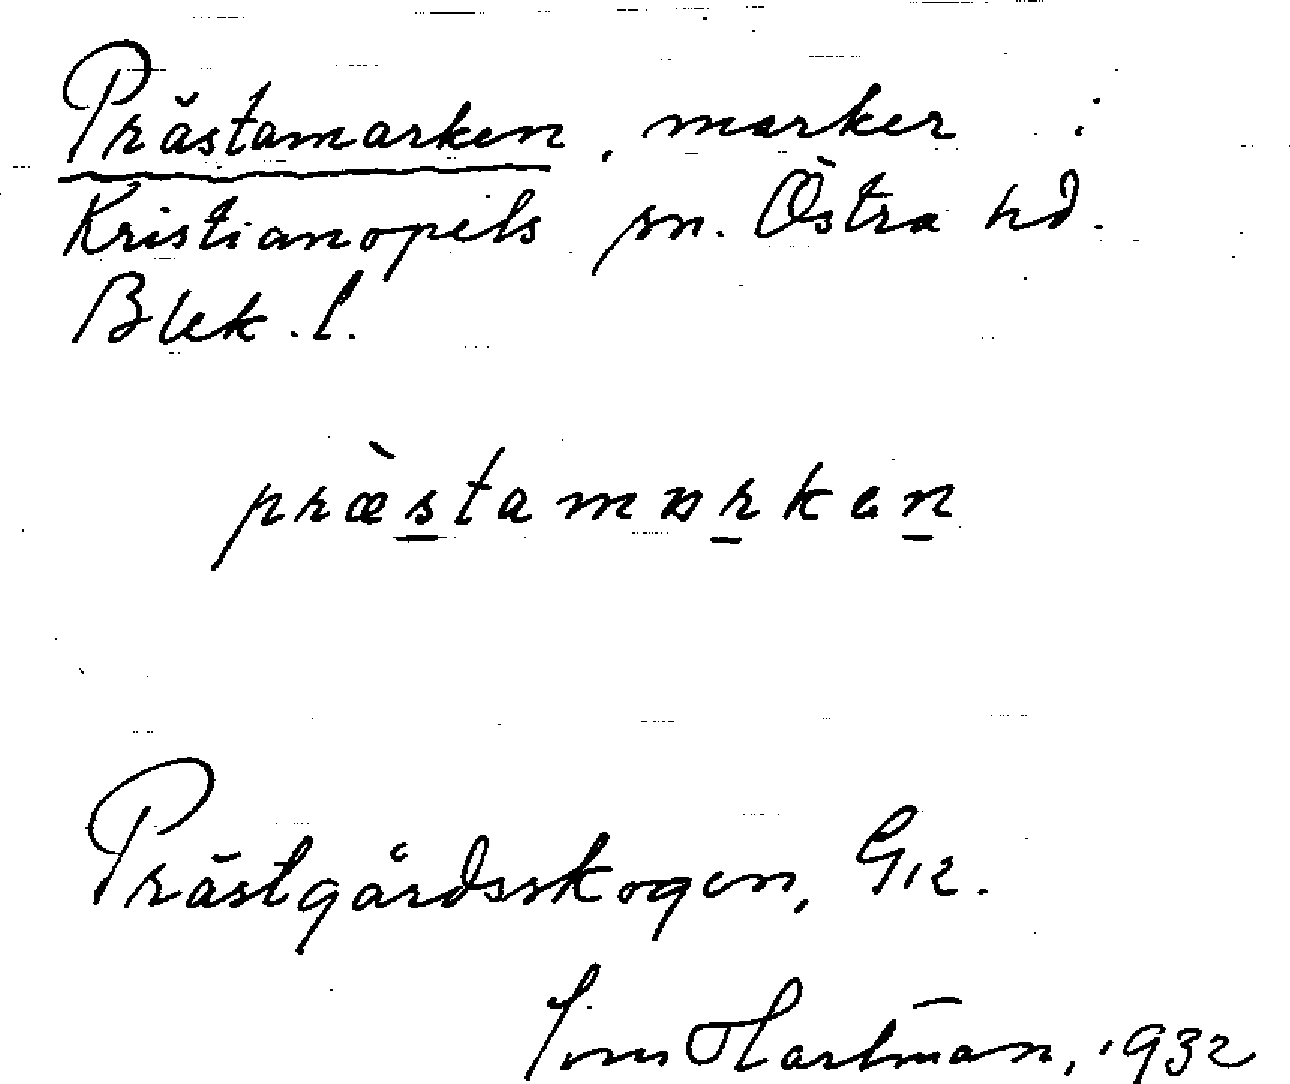 Prästamarken, marker i
Kristianopels sn. Östra hd.
Blek. l.
præ̀stamarkan
Prästgårdsskogen, G12.
Hartman, 1932